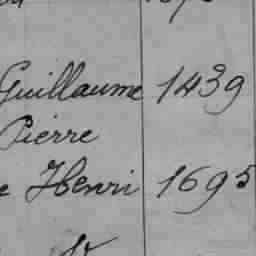 Guillaume 1439
Pierre
e Henri 1695